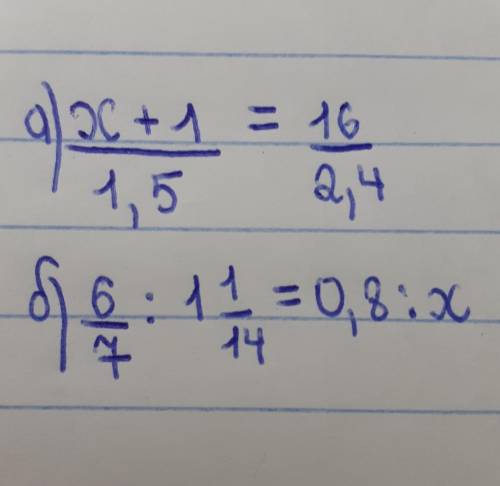 а) x + 1 / 1,5 = 16 / 2,4
б) 6/7 : 1 1/14 = 0,8 : x